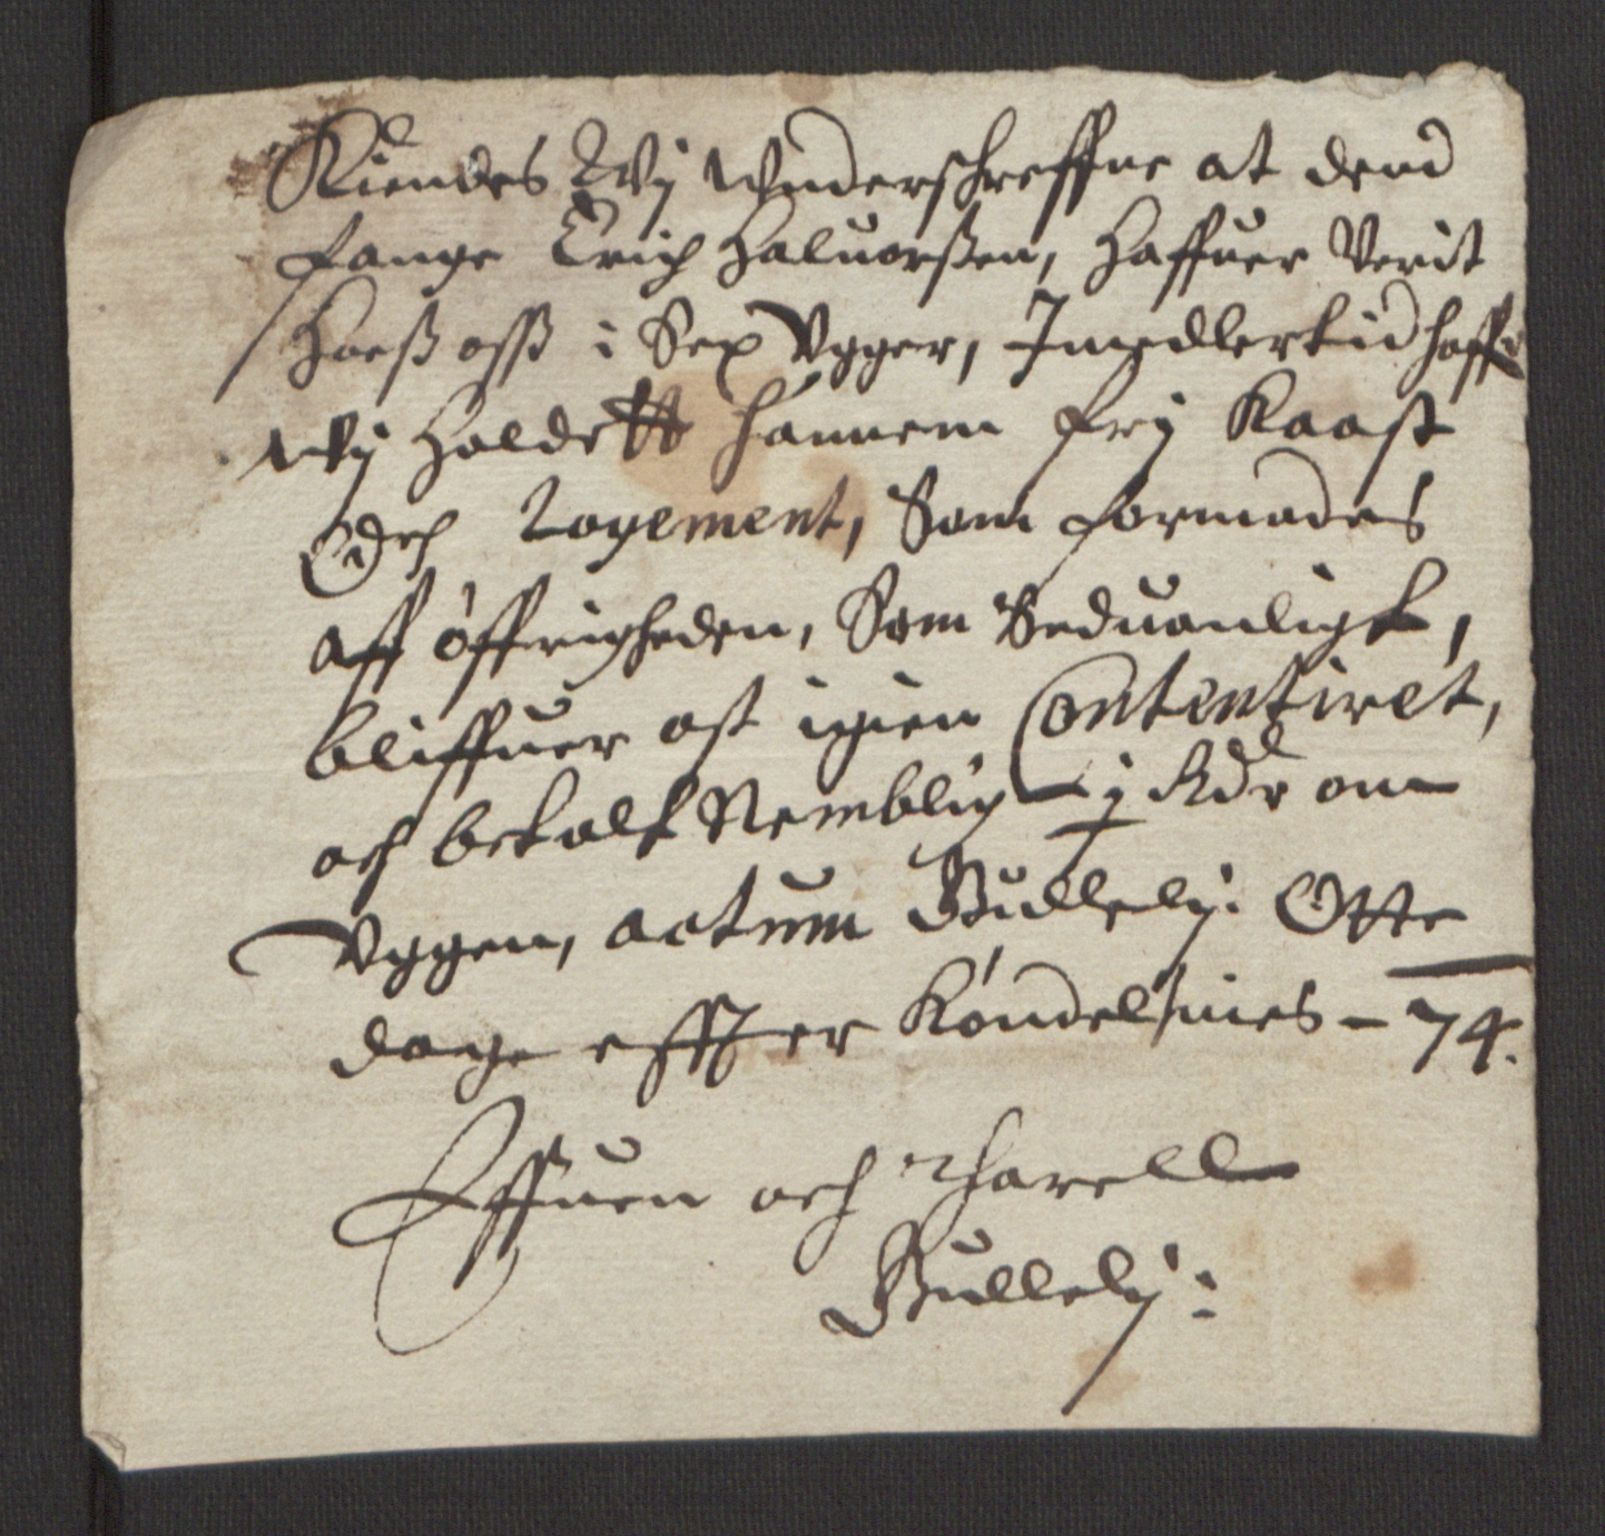 Kiendes Wij Vnderschreffne at dend
fange Erich Haluorßen, Haffuer Verit
Hoeß oss i Sex Vgger, Imedlertid haffr
wij Holdett hannem frij Kaast
Och Logement, Som formodes
aff öffrigheden, Som Seduanligt,
bliffuer ost igien Contentiret,
och betalt Nemblig – j Rdr om
Vggen, actum Bullely: Otte
dage effter Köndelsmes – 74.
Effuen och Tharell
Bullely: